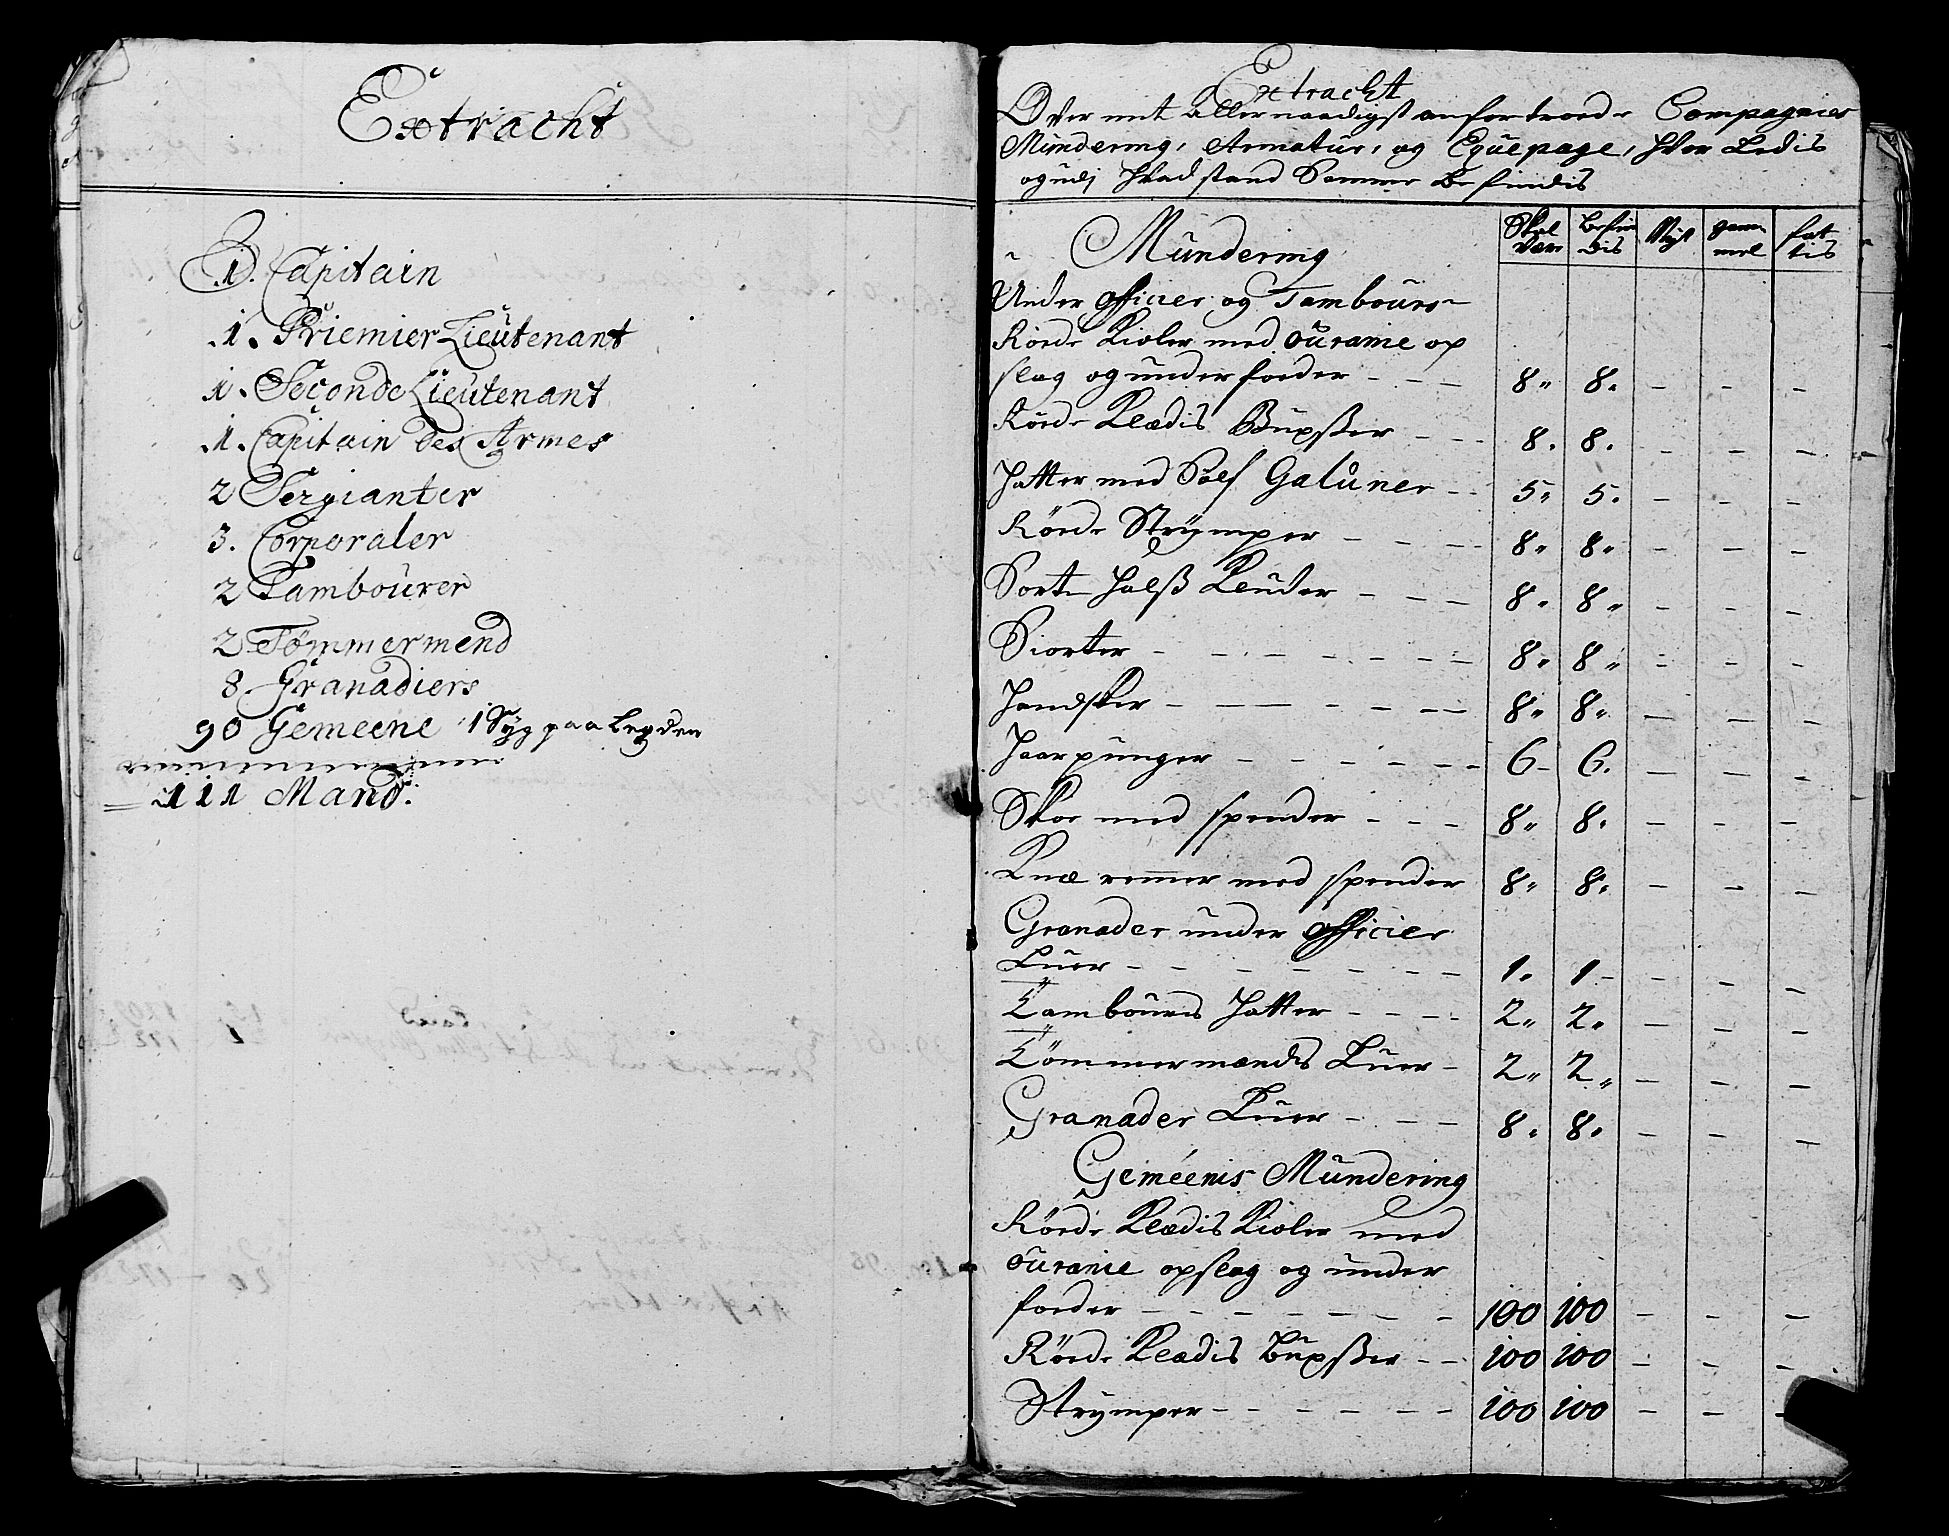 Extracht
1. Capitain
1. Priemier Lieutenant
1. Seconde Lieutenant
1. Capitain des Armes
2 Sergianter
3. Corporaler
2 Tambourer
2 Tømmermend
8 Granadiers
90 Gemeene 1 Syg paa Legden
111 Mand.
Extracht
Over mit allernaadigst anfortroede Compagnies
Mundering, Armatur, og Equepage, hvor Ledis
og udj hvad stand Samme befindis
Mundering Skal være Befindis Nyt gammel fattis
Under officier og Tambours
Røede Kioler med Ouranie op
slag og under foeder - - - 8 8 - - -
Røede Klædis Buxßer - - - 8. 8. - - -
Hatter med Sølf Galuner - - 5 5. - - -
Røede Strømper - - - - 8 8 - - -
Sorte Halß Kluder - - - 8 8 - - -
Siorter - - - - - - - 8 8 - - -
Handsker - - - - - - 8 8 - - -
Haarpunger - - - - - - 6 6. - - -
Skoe med spender - - - 8 8. - - -
Knæ remmer med spender 8 8. - - -
Granader under officier
Luer - - - - - - - 1. 1 - - -
Tambours Hatter - - - - 2 2 - - -
Tømmermænds Luer - 2 2 - - -
Granader Luer - - - 8. 8. - - -
Geméenis Mundering
Røede Klædis Kioler med
Ouranie opslag og under
foeder - - - - - - - 100 100 - - -
Røede Klædis Buxßer - - 100 100 - - -
Strømper - - - - - - 100 100 - - -